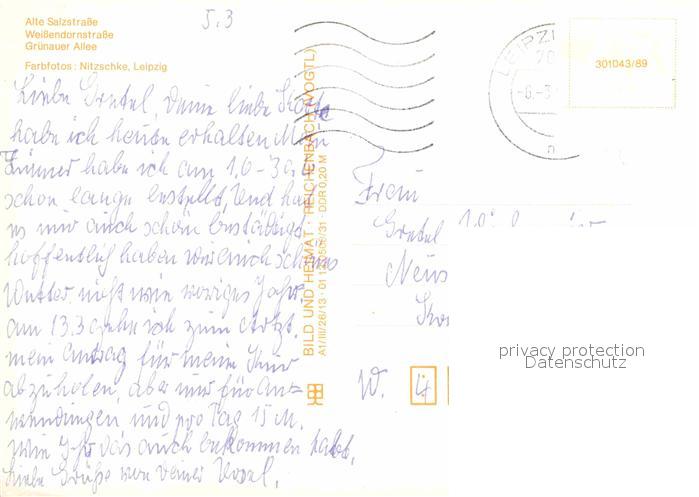 5.3
Alte Salzstraße
Weißendornstraße
Grünauer Allee
Farbfotos: Nitzschke, Leipzig
Liebe Gretel, Deine liebe Karte
habe ich heute erhalten Mein
Zimmer habe ich am 1,6 - 3
schon lange bestellt, Und hat
es mir auch schön bestätigt
hoffentlich haben wir auch schönes
Wetter nicht wie voriges Jahr
am 13.3 gehe ich zum Arzt.
mein Antrag für meine Kur
abzuholen, aber nur für An=
wendungen und pro Tag 15 M.
wie Ihr das auch bekommen habt.
Liebe Grüße von deiner
BILD UND HEIMAT · REICHENBACH (VOGTL)
A1/III/26/13 · 01 · DDR 0,20 M
LEIPZI
301043/89
Frau
Gretel
W.
privacy protection
Datenschutz